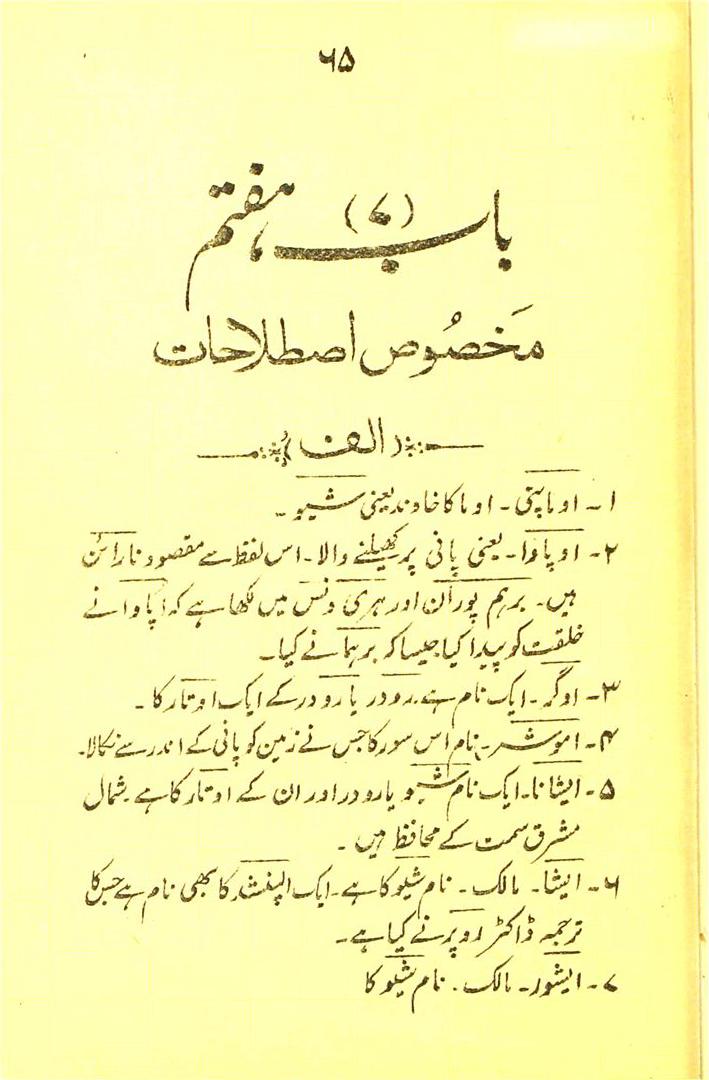 ۶۵
باب (۷) ہفتم
مَخصُوص اصطلاحات
الف
۱- اوماپتی - اوما کا خاوند یعنی شیو -
۲- اوپاوا - یعنی پانی پر کھیلنے والا - اس لفظ سے مقصود نارائن
ہیں - برہم پوران اور ہری ونس میں لکھا ہے کہ اپاوا نے
خلقت کو پیدا کیا جیسا کہ برہما نے کیا -
۳- اوگر - ایک نام ہے رودر یا رودر کے ایک اوتار کا -
۴- نام اس سور کا جس نے زمین کو پانی کے اندر سے نکالا -
۵- ایشانا - ایک نام شیو یا رودر اور ان کے اوتار کا ہے شمال
مشرق سمت کے محافظ ہیں -
۶- ایشا - مالک - نام شیو کا ہے - ایک اپنشد کا بھی نام ہے جس کا
ترجمہ ڈاکٹر روپر نے کیا ہے -
۷- ایشور - مالک - نام شیو کا